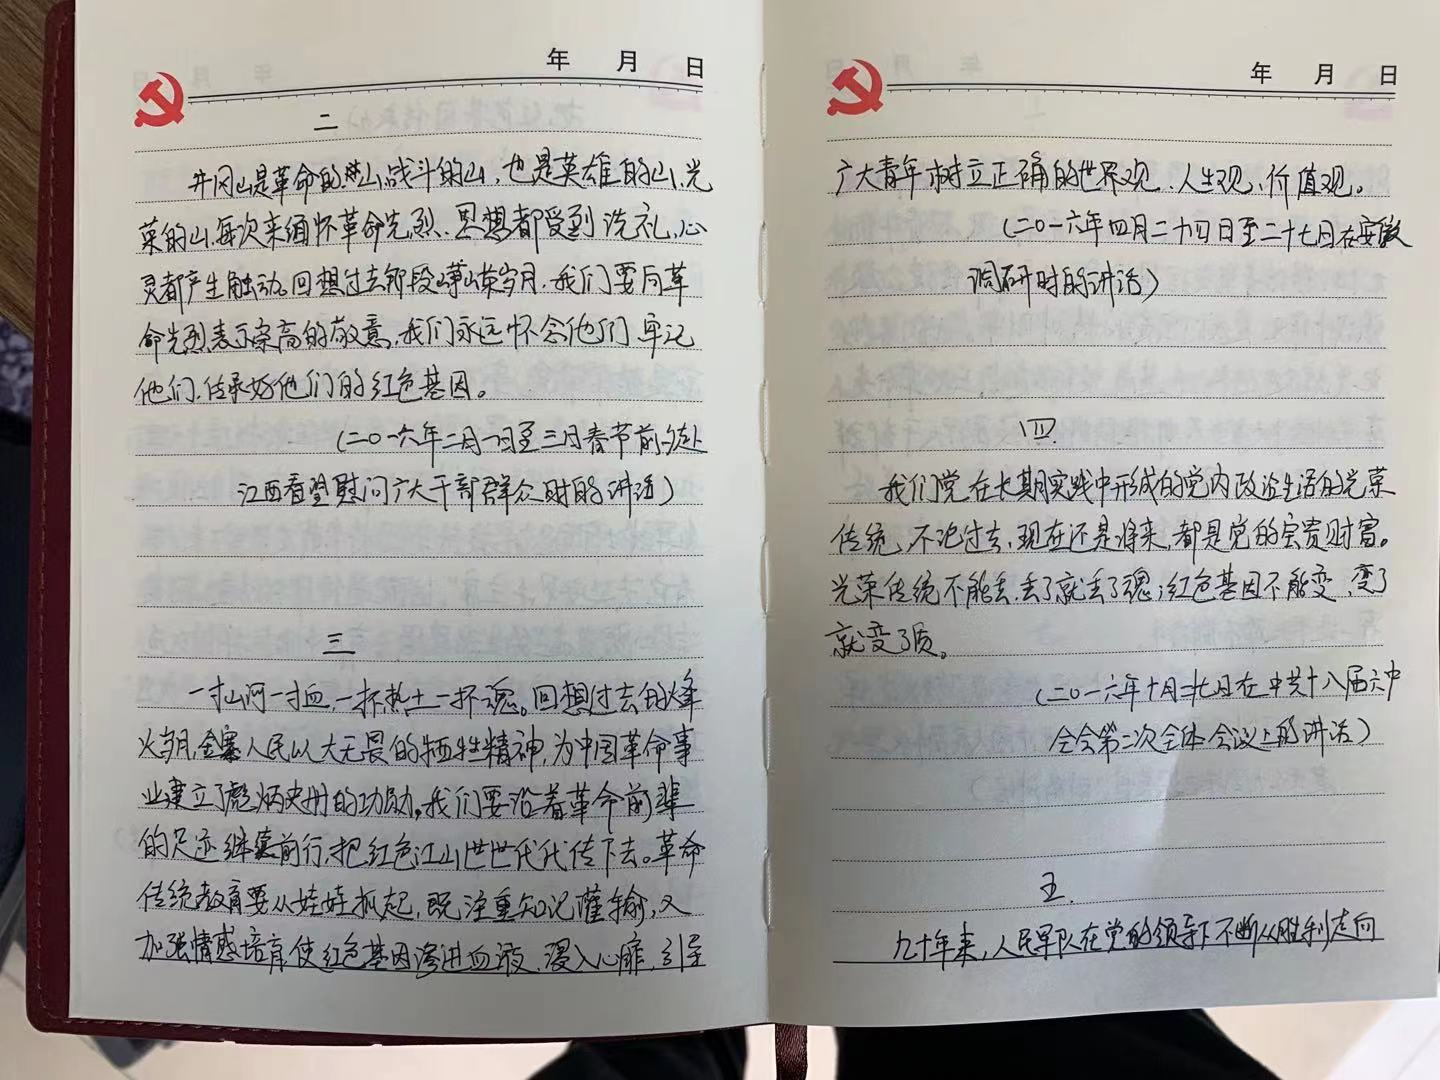 年 月 日
二
井冈山是革命的山、战斗的山，也是英雄的山、光
荣的山，每次来缅怀革命先烈、思想都受到洗礼，心
灵都产生触动。回想过去那段峥嵘岁月，我们要向革
命先烈表示崇高的敬意，我们永远怀念他们、牢记
他们，传承好他们的红色基因。
（二〇一六年二月一日至三日春节前夕赴
江西看望慰问广大干部群众时的讲话）
三
一寸山河一寸血，一抔热土一抔魂。回想过去的烽
火岁月，金寨人民以大无畏的牺牲精神，为中国革命事
业建立了彪炳史册的功勋，我们要沿着革命前辈
的足迹继续前行，把红色江山世世代代传下去。革命
传统教育要从娃娃抓起，既注重知识灌输，又
加强情感培育，使红色基因渗进血液、浸入心扉，引导
年 月 日
广大青年树立正确的世界观、人生观、价值观。
（二〇一六年四月二十四日至二十七日在安徽
调研时的讲话）
四
我们党在长期实践中形成的党内政治生活的光荣
传统，不论过去、现在还是将来，都是党的宝贵财富。
光荣传统不能丢，丢了就丢了魂；红色基因不能变，变了
就变了质。
（二〇一六年十月二十七日在中共十八届六中
全会第二次全体会议上的讲话）
五
九十年来，人民军队在党的领导下不断从胜利走向